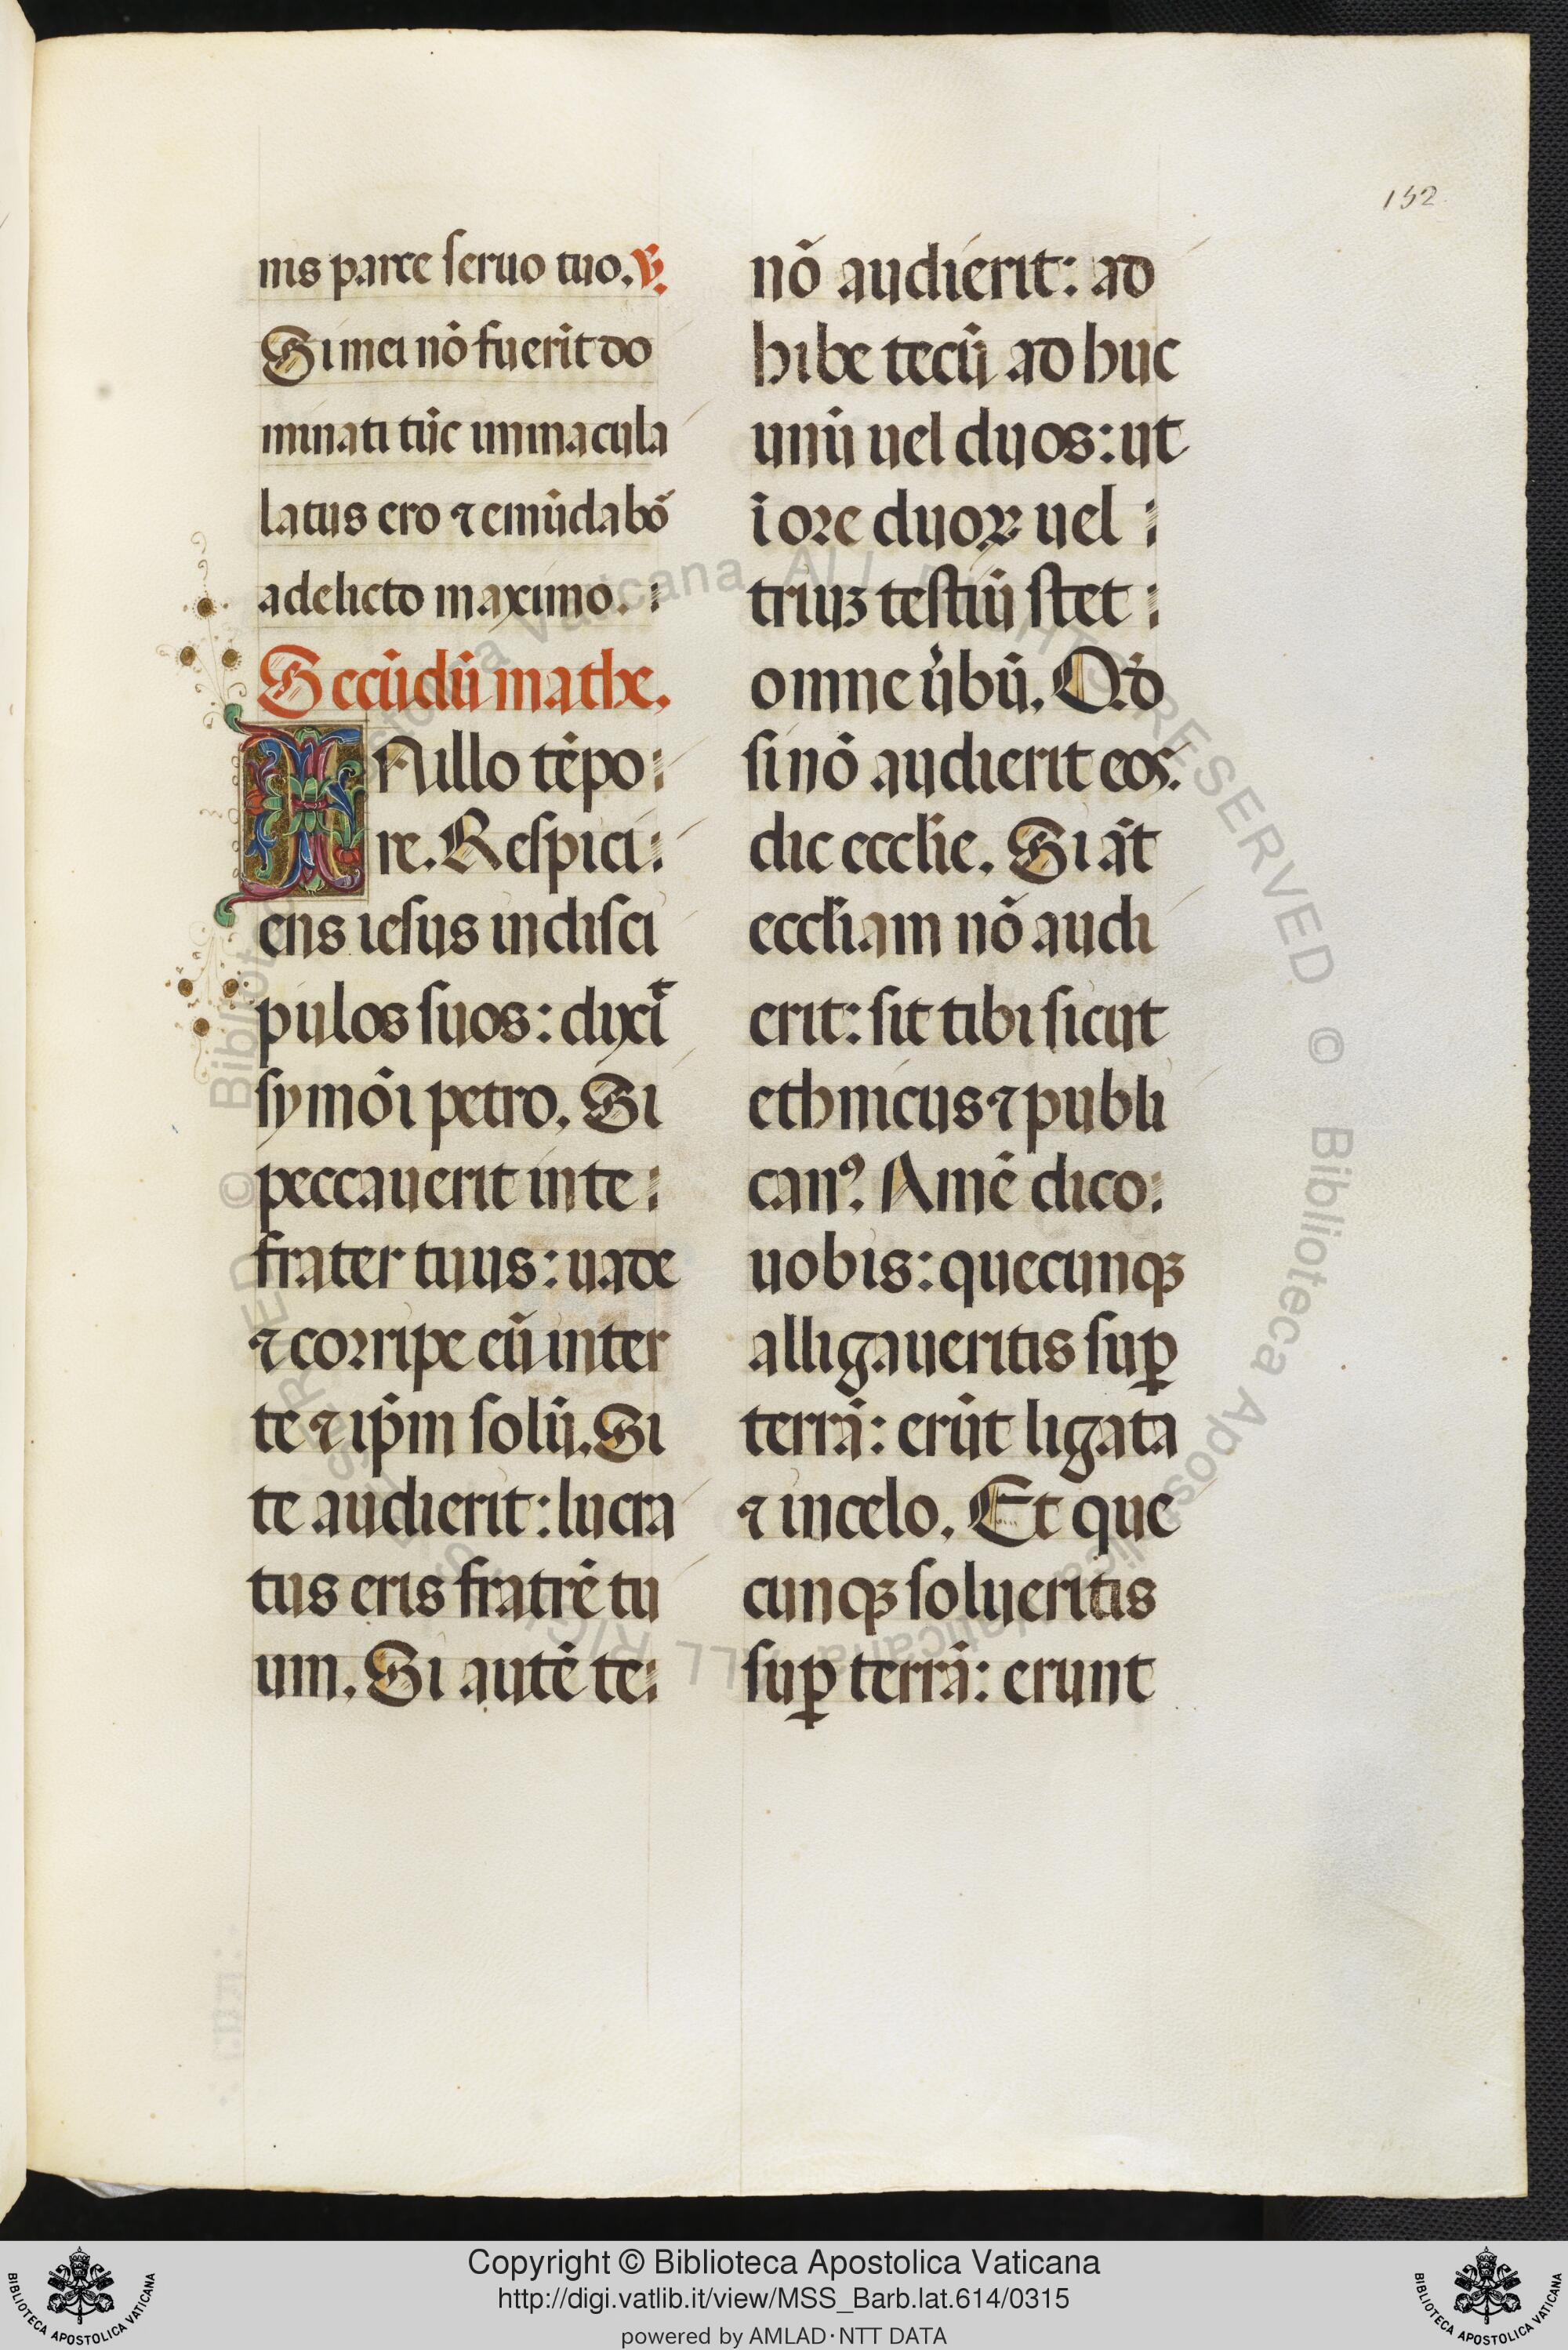 152
nis parce seruo tuo. ℣.
Si mei nõ fuerĩt do
minati tũc immacula
latus ero ⁊ emũdabõ
a delicto maximo.
Secũdũ mathe.
IN illo tẽpo
re. Respici
ens iesus in disci
pulos suos: dixĩt
symõi petro. Si
peccauerit in te
frater tuus: uade
⁊ corripe eũ inter
te ⁊ ip̃m solũ. Si
te audierit: lucra
tus eris fratrẽ tu
um. Si autẽ te
nõ audierit: ad
hibe tecũ ad huc
unũ uel duos: ut
ĩ ore duoꝝ uel
triuʒ testiũ stet
omne u̓bũ. Qd̓
si nõ audierit eos.
dic eccl̃ie. Si aũt
eccl̃iam nõ audi
erit: sit tibi sicut
ethnicus ⁊ publi
canꝰ. Amẽ dico
uobis: quecunqʒ
alligaueritis suꝑ
terrã: erũt ligata
⁊ in celo. Et que
cunqʒ solueritis
suꝑ terrã: erunt
Copyright © Biblioteca Apostolica Vaticana
http://digi.vatlib.it/view/MSS_Barb.lat.614/0315
powered by AMLAD·NTT DATA
BIBLIOTECA APOSTOLICA VATICANA
BIBLIOTECA APOSTOLICA VATICANA